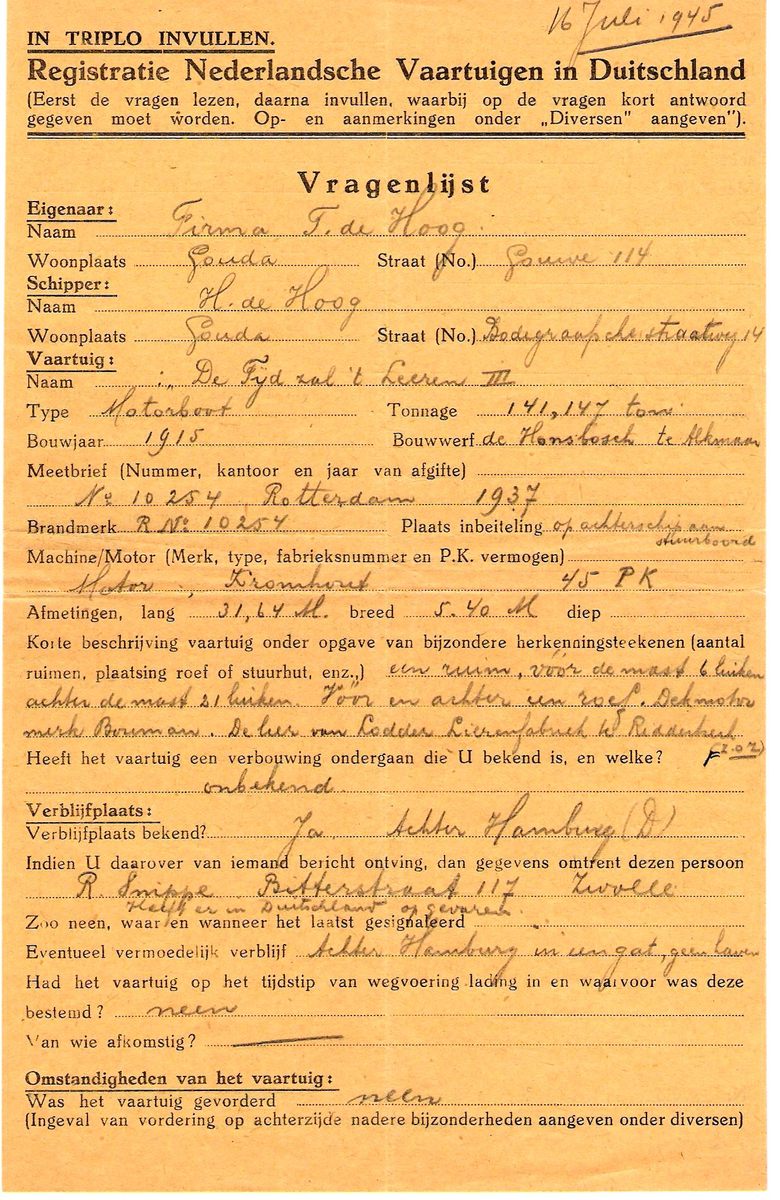 16 Juli 1945
IN TRIPLO INVULLEN.
Registratie Nederlandsche Vaartuigen in Duitschland
(Eerst de vragen lezen, daarna invullen, waarbij op de vragen kort antwoord
gegeven moet worden. Op- en aanmerkingen onder „Diversen" aangeven").
Vragenlijst
Eigenaar:
Naam Firma T. de Hoog.
Woonplaats Gouda Straat (No.) Gouwe 114
Schipper:
Naam H. de Hoog
Woonplaats Gouda Straat (No.) Bodegraafsche straatweg 14
Vaartuig:
Naam :„ De Tijd zal 't Leeren III
Type Motorboot Tonnage 141,147 ton
Bouwjaar 1915 Bouwwerf de Honsbosch te Alkmaar
Meetbrief (Nummer, kantoor en jaar van afgifte)
No 10254 Rotterdam 1937
Brandmerk R No 10254 Plaats inbeiteling op achterschip aan
stuurboord
Machine/Motor (Merk, type, fabrieksnummer en P.K. vermogen)
Motor, Kromhout 45 PK
Afmetingen, lang 31,64 M. breed 5.40 M diep
Korte beschrijving vaartuig onder opgave van bijzondere herkenningsteekenen (aantal
ruimen, plaatsing roef of stuurhut, enz.,) een ruim, vóór de mast 6 luiken
achter de mast 21 luiken. Vóór en achter een roef. Dekmotor
merk Bouman. De lier van Lodder Lierenfabriek te Ridderkerk
(Z.O.Z)
Heeft het vaartuig een verbouwing ondergaan die U bekend is, en welke?
onbekend.
Verblijfplaats:
Verblijfplaats bekend? Ja Achter Hamburg (D)
Indien U daarover van iemand bericht ontving, dan gegevens omtrent dezen persoon
R. Snippe Bitterstraat 117 Zwolle
Heeft er in Duitschland op gevaren.
Zoo neen, waar en wanneer het laatst gesignaleerd
Eventueel vermoedelijk verblijf Achter Hamburg in een gat, geen haven
Had het vaartuig op het tijdstip van wegvoering lading in en waarvoor was deze
bestemd? neen
Van wie afkomstig? —
Omstandigheden van het vaartuig:
Was het vaartuig gevorderd neen
(Ingeval van vordering op achterzijde nadere bijzonderheden aangeven onder diversen)